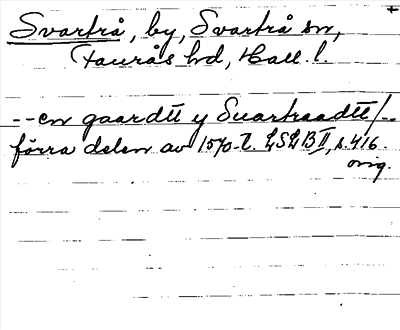 Svartrå, by, Svartrå sn,
Faurås hd, Hall. l.
-- en gaardtt y Suartraadtt/--
förra delen av 1570-t. LSLB II, s. 416.
orig.